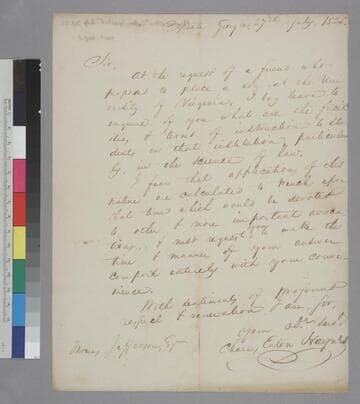 Sparta Georgia, 27th July, 1825.
Sir,
At the request of a friend who
proposes to place a son at the Uni-
versity of Virginia, I beg leave to
enquire of you what are the facil-
ities & terms of instruction to stu-
dents in that institution, particular-
ly, in the science of law.
I fear that applications of this
nature are calculated to trench upon
that time which would be devoted
to other & more important avoca-
tions. I must request you to make the
time & manner of your answer
comport entirely with your conve-
nience.
With sentiments of profound
respect & veneration I am Sir,
your obt. Servt.
Charles Eaton Haynes
Thomas Jefferson, Esqr